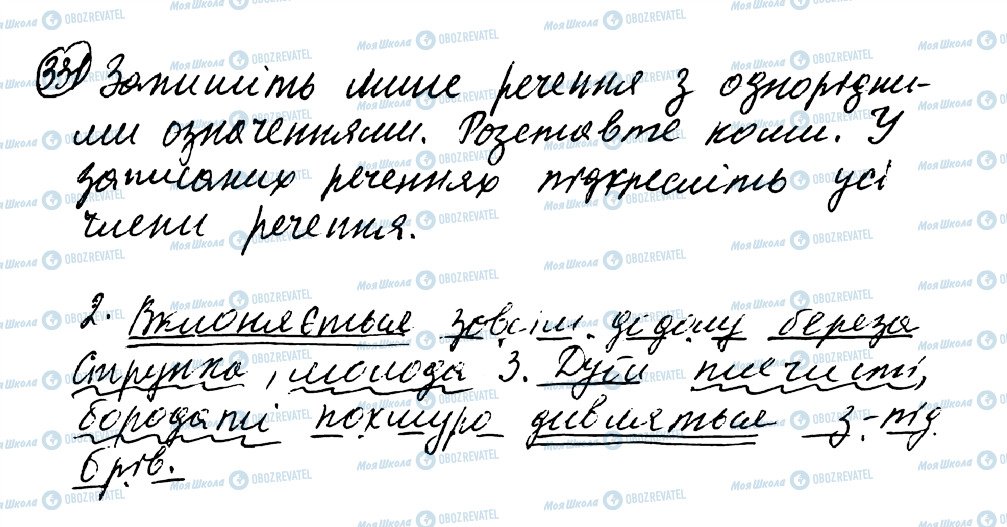 331 Запишіть лише речення з однорідни-
ми означеннями. Розставте коми. У
записаних реченнях підкресліть усі
члени речення.
2. Вклоняється зовсім дідому береза
струнка, молода 3. Дуби плечисті,
бородаті похмуро дивляться з-під
брів.